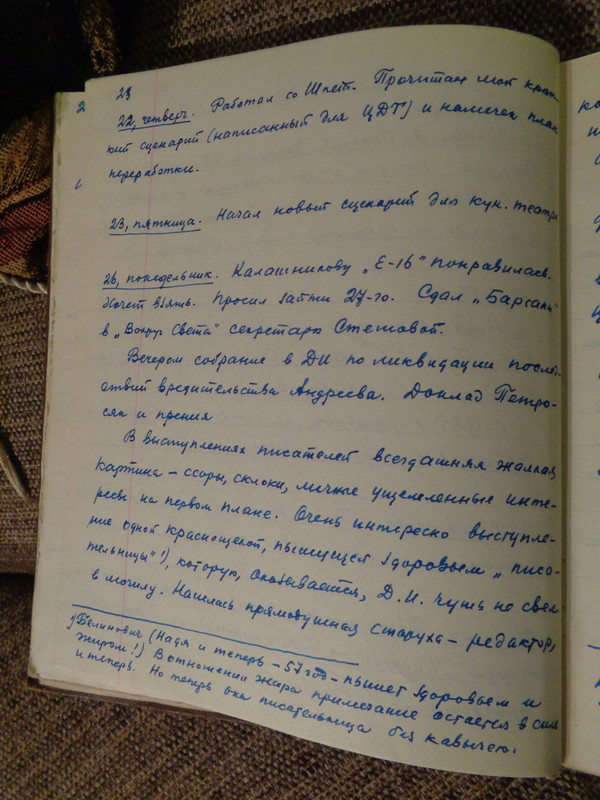 23
2
22, четверг. Работал со Шпет. Прочитал мой крат-
кий сценарий (написанный для ЦДТ) и намечен план
переработки.
23, пятница. Начал новый сценарий для кук. театра
26, понедельник. Калашникову „Е-16" понравилась.
Хочет взять. Просил зайти 27-го. Сдал „Барсаки"
в „Вокруг Света" секретарю Стетовой.
Вечером собрание в ДИ по ликвидации послед-
ствий вредительства Андреева. Доклад Петро-
сян и прения
В выступлениях писателей всегдашняя жалкая
картина – ссоры, склоки, личные ущемленные инте-
ресы на первом плане. Очень интересно выступле-
ние одной краснощекой, пышущей здоровьем „писа-
тельницы" 1), которую, оказывается, Д.И. чуть не свел
в могилу. Нашлась прямодушная старуха – редактор,
1) Белинович (Надя и теперь – 57 год – пышет здоровьем и
жиром!) В отношении жира примечание остается в силе
и теперь. Но теперь она писательница без кавычек.